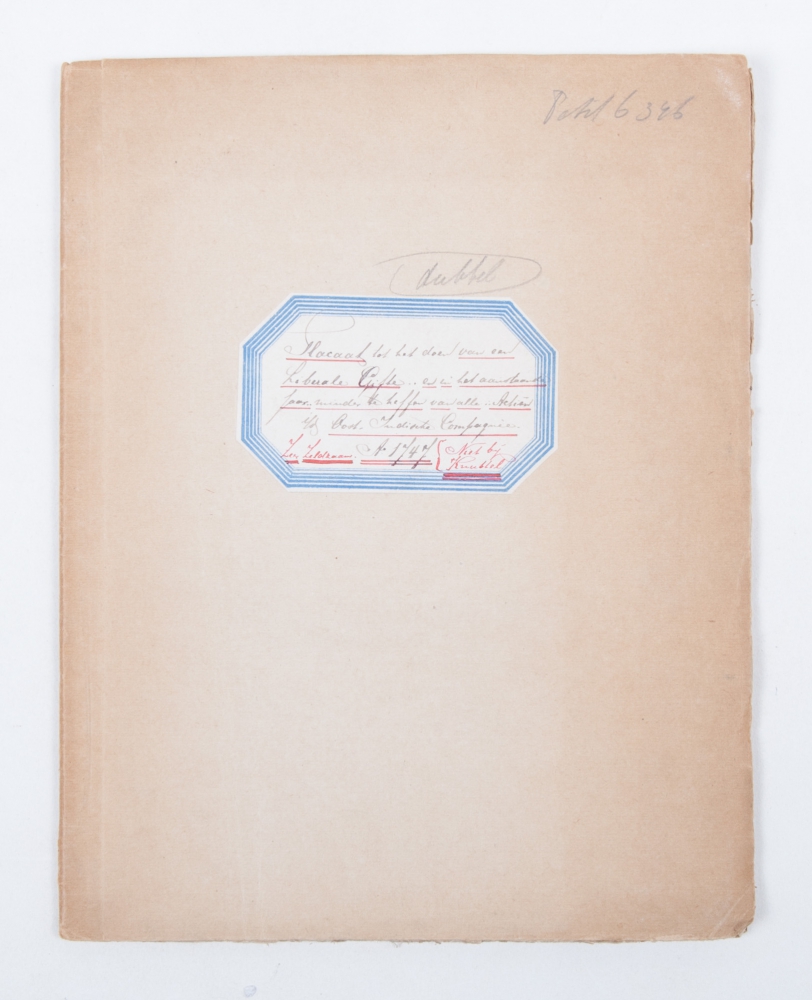 6 346
dubbel
Placaat tot het doen van een
Liberale Gifte .. en in het aanstaande
Jaar minder te heffen van alle .. Actiën
Oost. Indische Compagnien
Zeer Zeldzaam. Ao 1747 { Niet bij
Knuttel